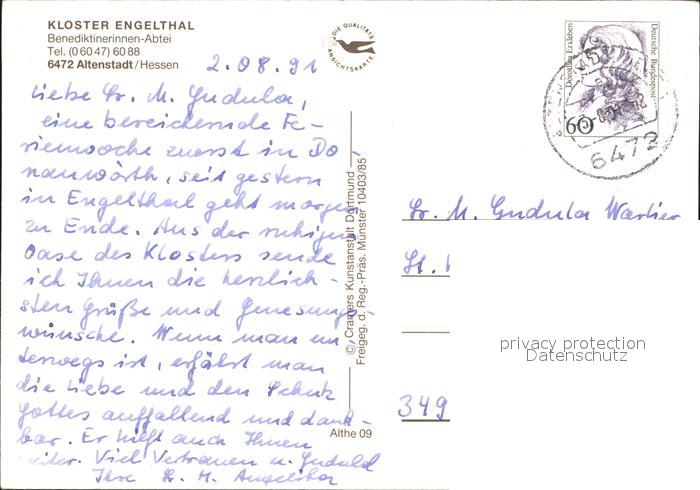 KLOSTER ENGELTHAL
Benediktinerinnen-Abtei
Tel. (0 60 47) 60 88
6472 Altenstadt/Hessen
2.08.91
Liebe Sr. M. Gudula,
eine bereichernde Fe-
rienwoche zuerst in Do
nauwörth, seit gestern
in Engelthal geht morgen
zu Ende. Aus der ruhigen
Oase des Klosters sende
ich Ihnen die herzlich-
sten Grüße und Genesungs
wünsche. Wenn man un
terwegs ist, erfährt man
die Liebe und den Schutz
Gottes auffallend und dank-
bar. Er hilft auch Ihnen
weiter. Viel Vertrauen u. Geduld
Ihre Sr. M.
DIE QUALITÄTS
ANSICHTSKARTE
© Cramers Kunstanstalt Dortmund
Freigeg. d. Reg.-Präs. Münster 10403/85
Althe 09
Dorothea Erxleben
Deutsche Bundespost
60
6472
Sr. M. Gudula
St.
349
privacy protection
Datenschutz